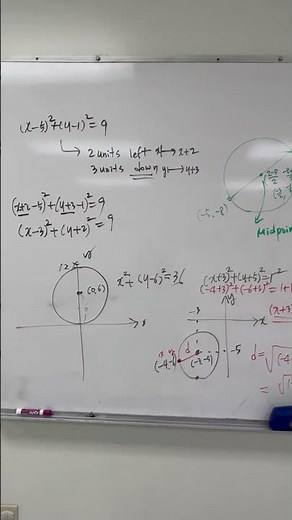 (x-5)²+(y-1)²=9
2 units left x→x+2
3 units down y→y+3
(x+2-5)²+(y+3-1)²=9
(x-3)²+(y+2)²=9
(-5,-8)
Midpoin
y
12
(0,6)
x²+(y-6)²=36
x
(x+3)²+(y+5)²=1²
(-4+3)²+(-6+5)²=1+1
y
-3
x
d
(-3,-5)
-5
d=√(-4
=√(-1